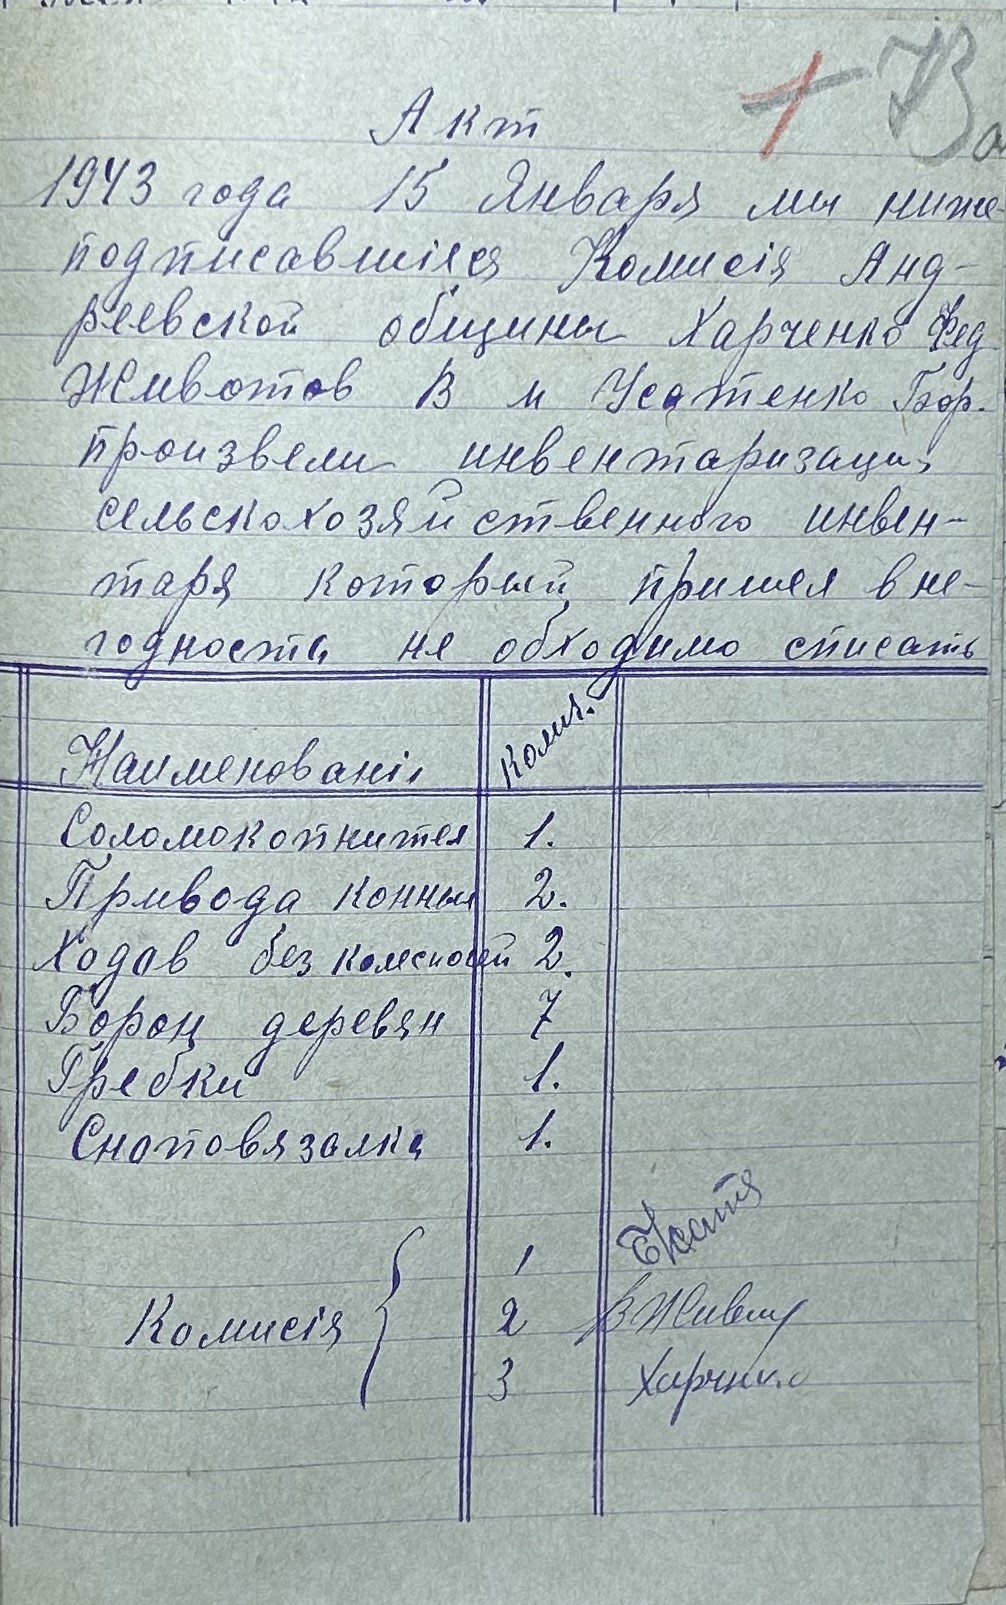 Акт
1943 года 15 Января мы ниже
подписавшіяся Комисія Анд-
реевской общины Харченко Фед
Животов В и Усатенко Бор.
произвели инвентаризаци
сельскохозяйственного инвен-
таря который пришел в не-
годноста не обходимо списать
Наименованія Колич.
Соломокопнител 1.
Привода конных 2.
Ходов без колесностей 2.
Борон деревян 7
Гребки 1.
Сноповязалка 1.
1
Комисія 2 В Живот
3 Харченко